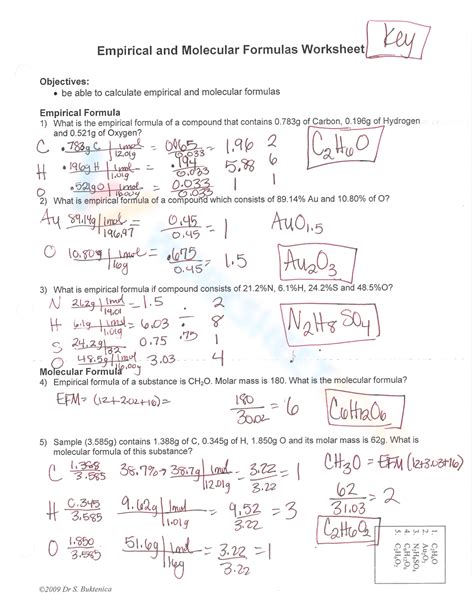 Empirical and Molecular Formulas Worksheet
Key
Objectives:
• be able to calculate empirical and molecular formulas
Empirical Formula
1) What is the empirical formula of a compound that contains 0.783g of Carbon, 0.196g of Hydrogen
and 0.521g of Oxygen?
C .783g C | 1mol / 12.01g = .065 / 0.033 = 1.96 2
H .196g H | 1mol / 1.01g = .194 / 0.033 5.88 6
O .521g O | 1mol / 16.00g 0.033 / 0.033 1 1
C2H6O
2) What is empirical formula of a compound which consists of 89.14% Au and 10.80% of O?
Au 89.14g | 1mol / 196.97 = 0.45 / 0.45 = 1
AuO1.5
O 10.80g | 1mol / 16g = .675 / 0.45 = 1.5
Au2O3
3) What is empirical formula if compound consists of 21.2%N, 6.1%H, 24.2%S and 48.5%O?
N 21.2g | 1mol / 14.01 = 1.5 2
H 6.1g | 1mol / 1.01g = 6.03 ÷ 8
S 24.2g | / 32 0.75 .75 1
O 48.5g | 1mol / 16.00g 3.03 4
N2H8SO4
Molecular Formula
4) Empirical formula of a substance is CH2O. Molar mass is 180. What is the molecular formula?
EFM = (12+2.02+16) =
180 / 30.02 = 6
C6H12O6
5) Sample (3.585g) contains 1.388g of C, 0.345g of H, 1.850g O and its molar mass is 62g. What is
molecular formula of this substance?
C 1.388 / 3.585 38.7% → 38.7g | 1mol / 12.01g = 3.22 / 3.22 = 1
CH3O = EFM (12+3.03+16)
62 / 31.03 = 2
H 0.345 / 3.585 9.62g | 1mol / 1.01g = 9.52 / 3.22 = 3
C2H6O2
O 1.850 / 3.585 51.6g | 1mol / 16g = 3.22 / 3.22 = 1
1. C2H6O
2. Au2O3
3. N2H8SO4
4. C6H12O6
5. C2H6O2
©2009 Dr S. Buktenica